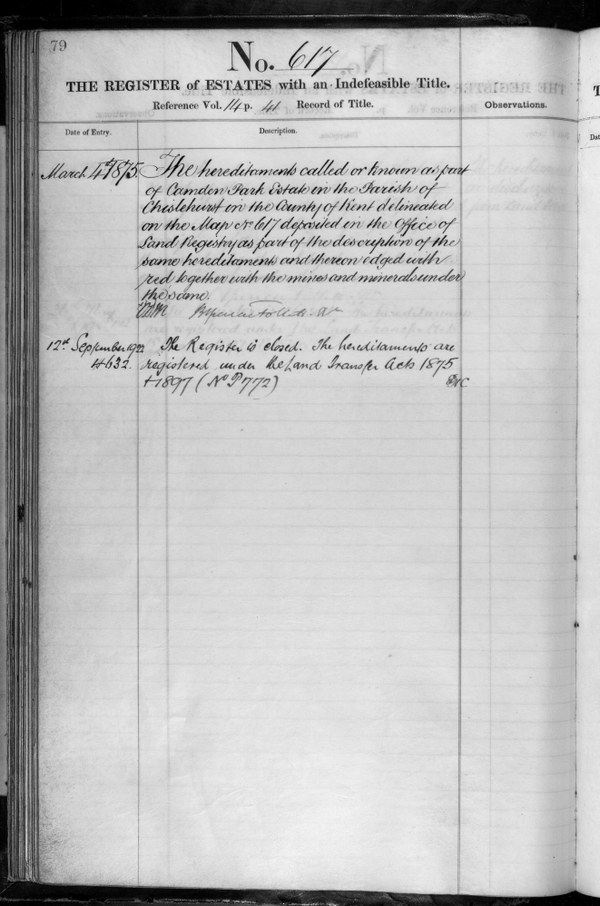 79
No. 617
THE REGISTER of ESTATES with an Indefeasible Title.
Reference Vol. 14 p. 41 Record of Title.
Observations.
Date of Entry.
Description.
March 4th 1875.
The hereditaments called or known as part
of Camden Park Estate in the Parish of
Chislehurst in the County of Kent delineated
on the Map No 617 deposited in the Office of
Land Registry as part of the description of the
same hereditaments and thereon edged with
red together with the mines and minerals under
the same.
12th September 1922
4632.
The Register is closed. The hereditaments are
registered under the Land Transfer Acts 1875
+ 1897 (No P772)